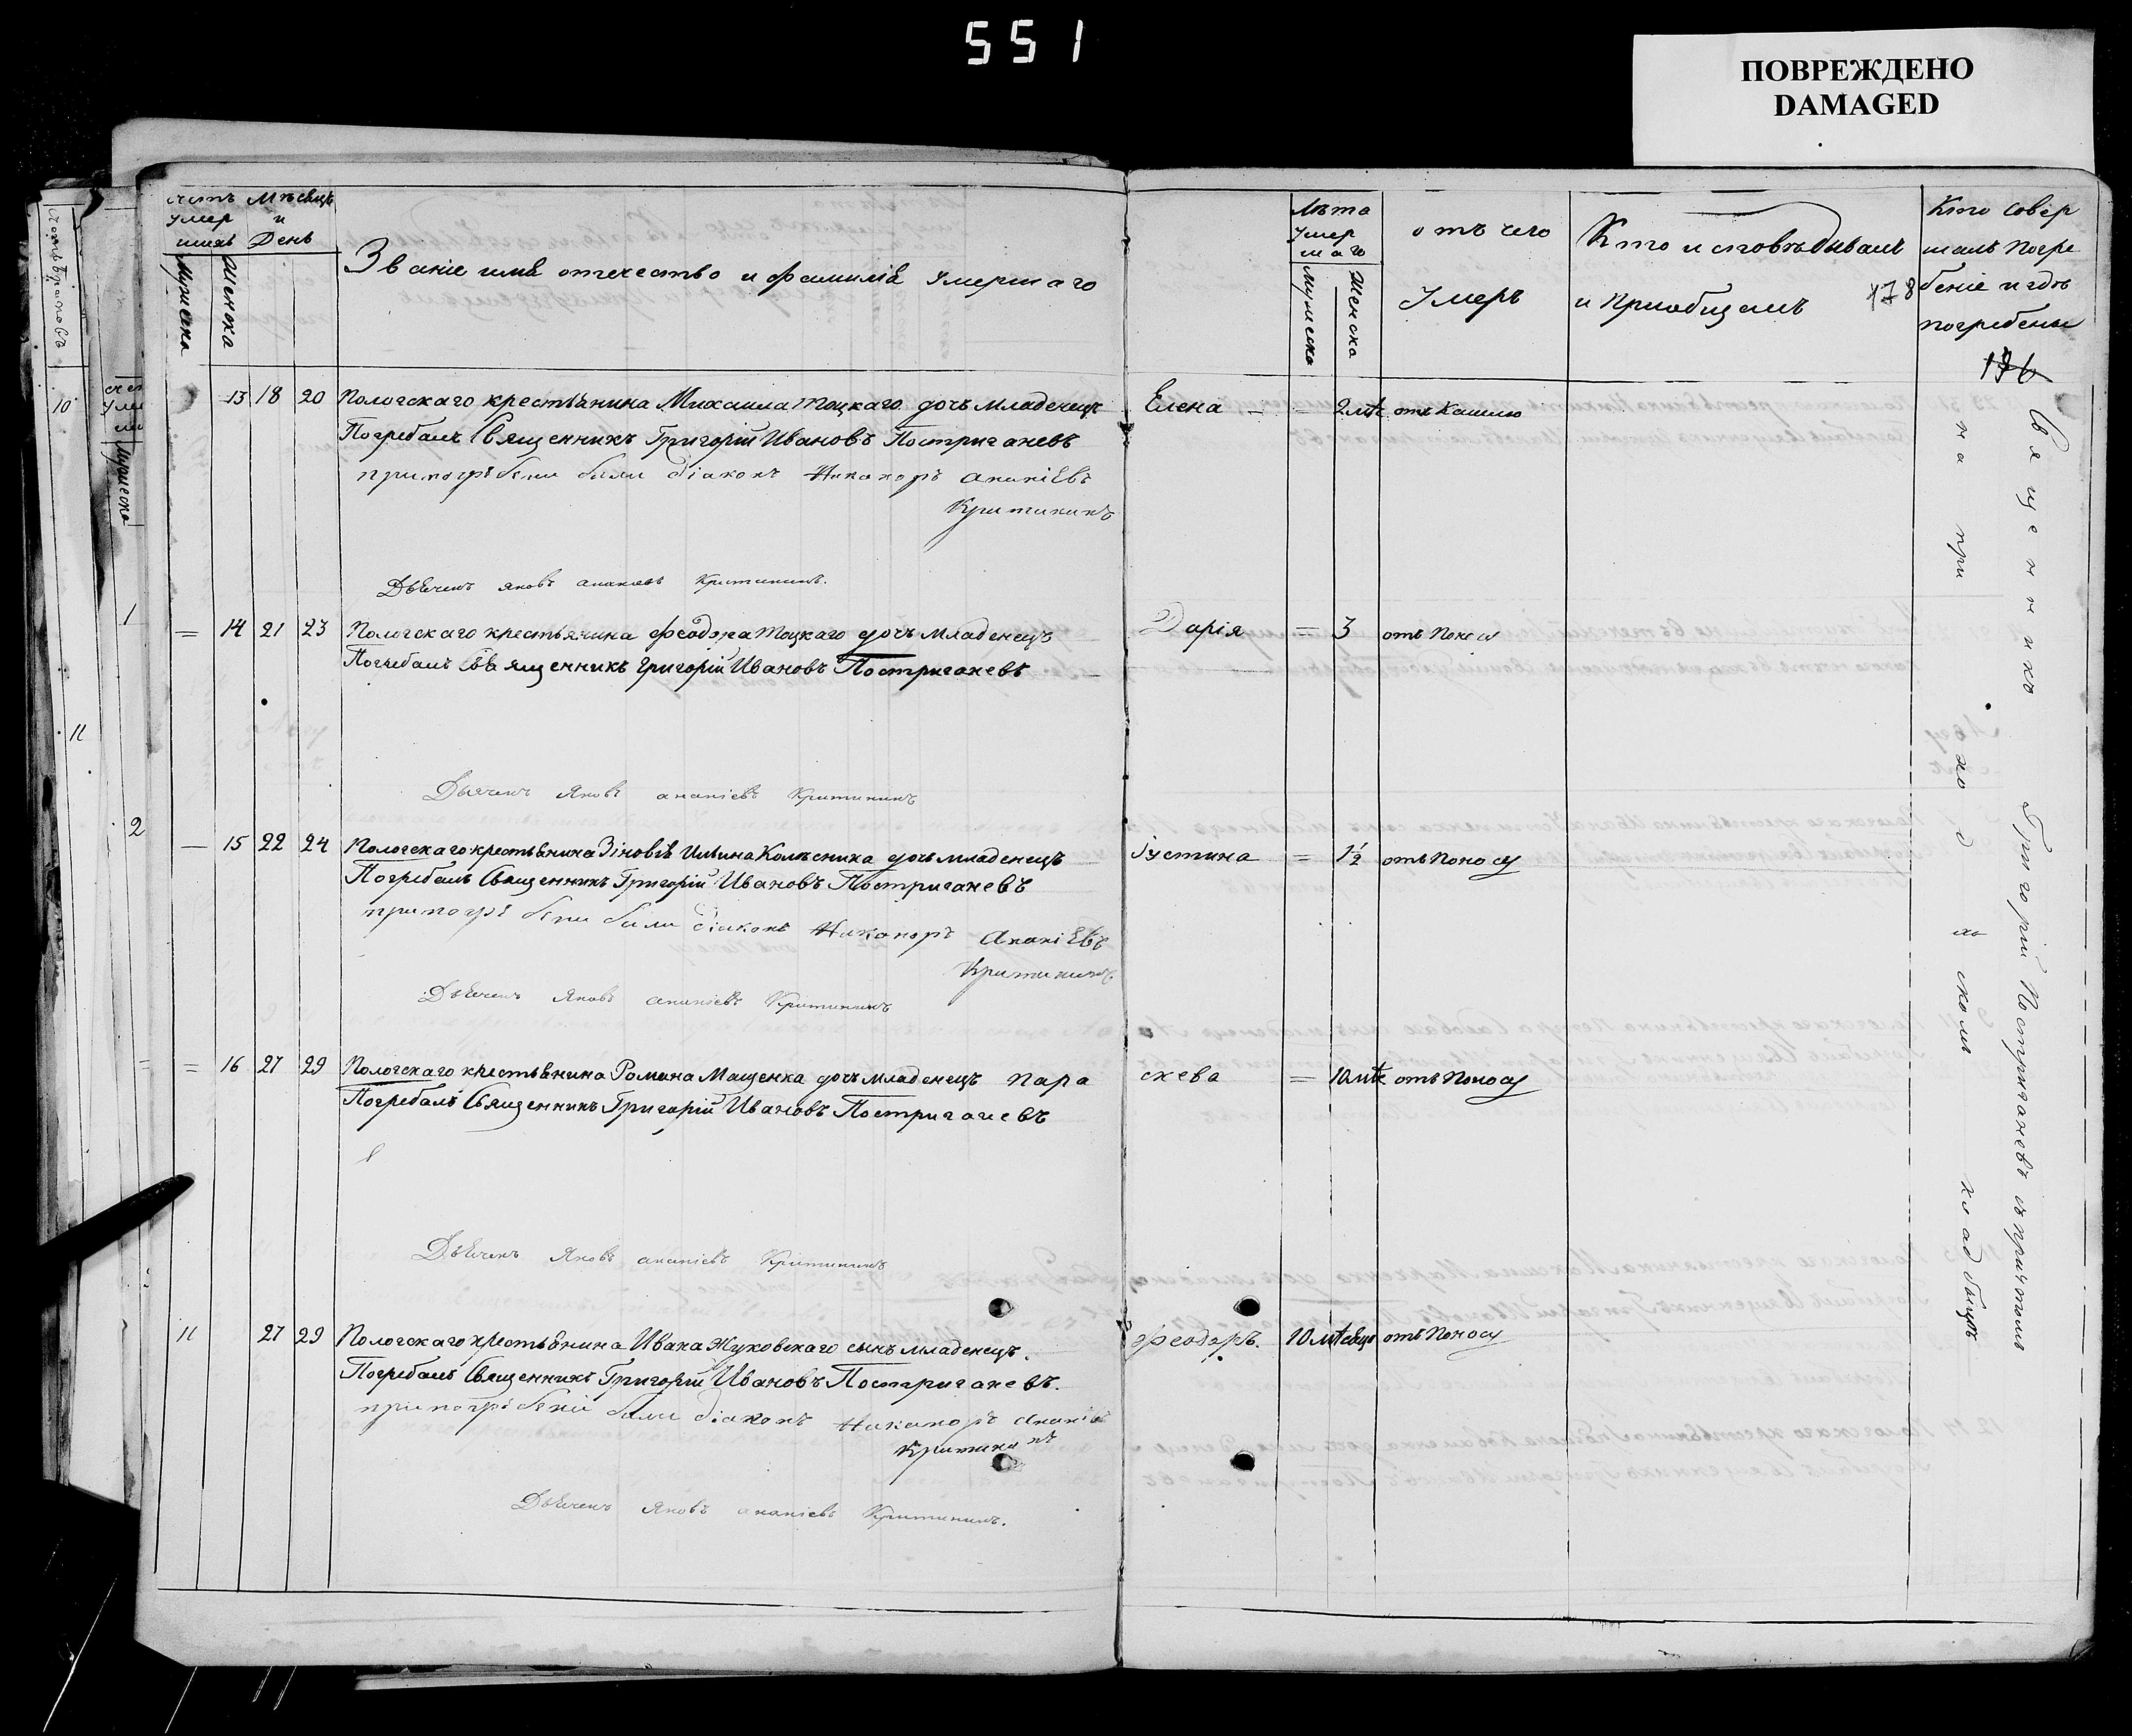 551
ПОВРЕЖДЕНО
DAMAGED
счетъ умершихъ
Мѣсецъ и День
Мужеска
Женска
Званіе имя отечество и фамилія умершаго
Лѣта умершаго
Мужеска
Женска
отъ чего умеръ
Кто исповѣдывалъ и приобщалъ
178
Кто совершалъ погребеніе и гдѣ погребены
176
13 18 20 Пологскаго крестьянина Михаила Тоцкаго дочь младенецъ Елена – = 2 мѣс отъ кашлю
Погребалъ Священникъ Григорій Ивановъ Постриганевъ
при погрѣбени били діаконъ Никаноръ Ананіевъ
Критининъ
Дьячекъ Яковъ Ананіевъ Критининъ.
= 14 21 23 Пологскаго крестьянина Феодора Тоцкаго дочь младенецъ Дарія = 3 отъ поносу
Погребалъ Священникъ Григорій Ивановъ Постриганевъ
Дьячекъ Яковъ Ананіевъ Критининъ
— 15 22 24 Пологскаго крестьянина Зіновія Ильина Колѣсника дочь младенецъ Іустина = 1½ отъ поносу
Погребалъ Священникъ Григорій Ивановъ Постриганевъ
при погрѣбени били діаконъ Никаноръ Ананіевъ
Критининъ
Дьячекъ Яковъ Ананіевъ Критининъ
= 16 27 29 Пологскаго крестьянина Романа Мащенка дочь младенецъ Параскева = 10 мѣс отъ поносу
Погребалъ Священникъ Григорій Ивановъ Постриганевъ
Дьячекъ Яковъ Ананіевъ Критининъ
11 27 29 Пологскаго крестьянина Ивана Жуковскаго сынъ младенецъ Феодоръ. 10 мѣсяцо отъ поносу
Погребалъ Священникъ Григорій Ивановъ Постриганевъ.
при погрѣбеніи били діаконъ Никаноръ Ананіевъ
Критининъ
Дьячекъ Яковъ Ананіевъ Критининъ.
Священникъ Григорій Постриганевъ съ причтомъ
на приходскомъ кладбищѣ